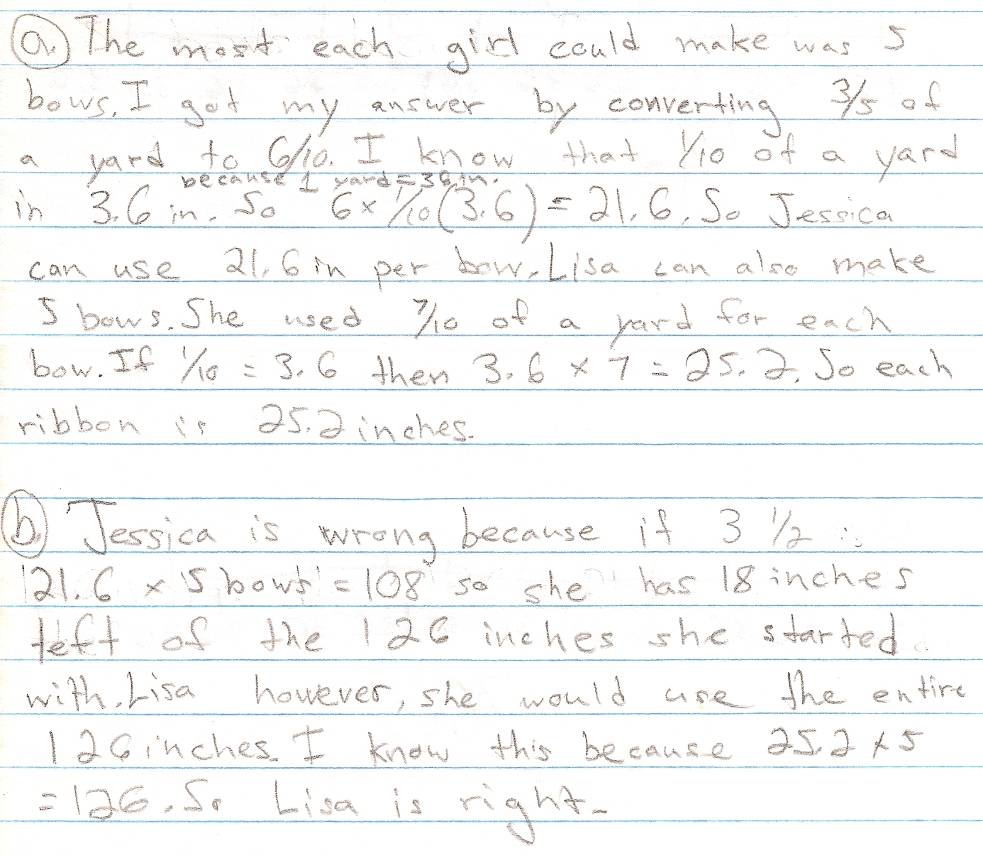 a. The most each girl could make was 5
bows. I got my answer by converting 3/5 of
a yard to 6/10. I know that 1/10 of a yard
because 1 yard = 36 in.
in 3.6 in. So 6 x 1/10 (3.6) = 21.6. So Jessica
can use 21.6 in per bow. Lisa can also make
5 bows. She used 7/10 of a yard for each
bow. If 1/10 = 3.6 then 3.6 x 7 = 25.2. So each
ribbon is 25.2 inches.
b. Jessica is wrong because if 3 1/2 is
21.6 x 5 bows = 108 so she has 18 inches
left of the 126 inches she started
with. Lisa however, she would use the entire
126 inches. I know this because 25.2 x 5
= 126. So Lisa is right.